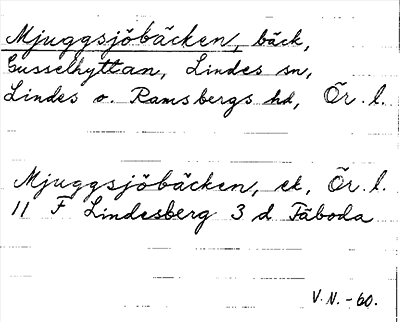 Mjuggsjöbäcken, bäck,
Gusselhyttan, Lindes sn,
Lindes o. Ramsbergs hd, Ör. l.
Mjuggsjöbäcken, ek, Ör. l.
11 F Lindesberg 3 d Fåboda
V. N. -60.